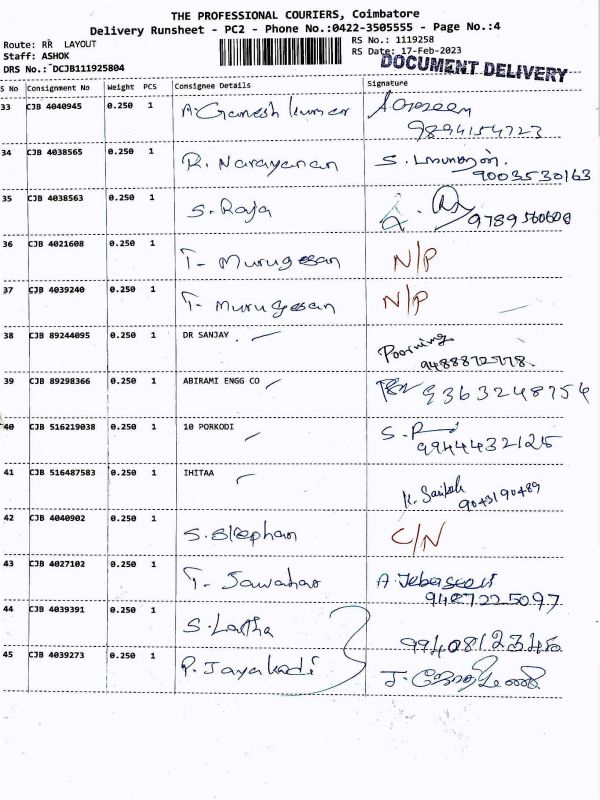 THE PROFESSIONAL COURIERS, Coimbatore
Delivery Runsheet - PC2 - Phone No.:0422-3505555 - Page No.:4
Route: RR LAYOUT
RS No.: 1119258
Staff: ASHOK
RS Date: 17-Feb-2023
DRS No.: DCJB111925804
DOCUMENT DELIVERY
S No Consignment No Weight PCS Consignee Details Signature
33 CJB 4040945 0.250 1 A. Ganesh kumar
9894154723
34 CJB 4038565 0.250 1 R. Narayanan S.
9003530163
35 CJB 4038563 0.250 1 S. Raja
36 CJB 4021608 0.250 1 T- Murugesan N/P
37 CJB 4039240 0.250 1 T- Murugesan N/P
38 CJB 89244095 0.250 1 DR SANJAY
9488872778
39 CJB 89298366 0.250 1 ABIRAMI ENGG CO 9363248754
40 CJB 516219038 0.250 1 10 PORKODI
9944432125
41 CJB 516487583 0.250 1 IHITAA
9043190489
42 CJB 4040902 0.250 1 S. Stephan C/N
43 CJB 4027102 0.250 1 T. Jawahar
9487225097
44 CJB 4039391 0.250 1 S. Latha
45 CJB 4039273 0.250 1 P. Jayakodi